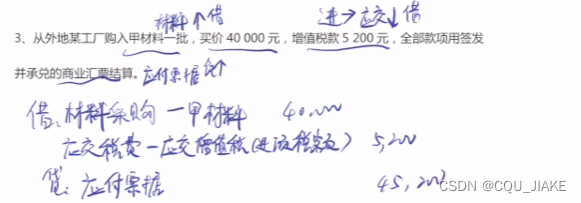 材料↑借 进→应交↓借
3、从外地某工厂购入甲材料一批，买价 40 000 元，增值税款 5 200 元，全部款项用签发
并承兑的商业汇票结算。应付票据 负↑
借：材料采购 — 甲材料 40,000
应交税费 — 应交增值税（进项税额） 5,200
贷：应付票据 45,200
CSDN @CQU_JIAKE